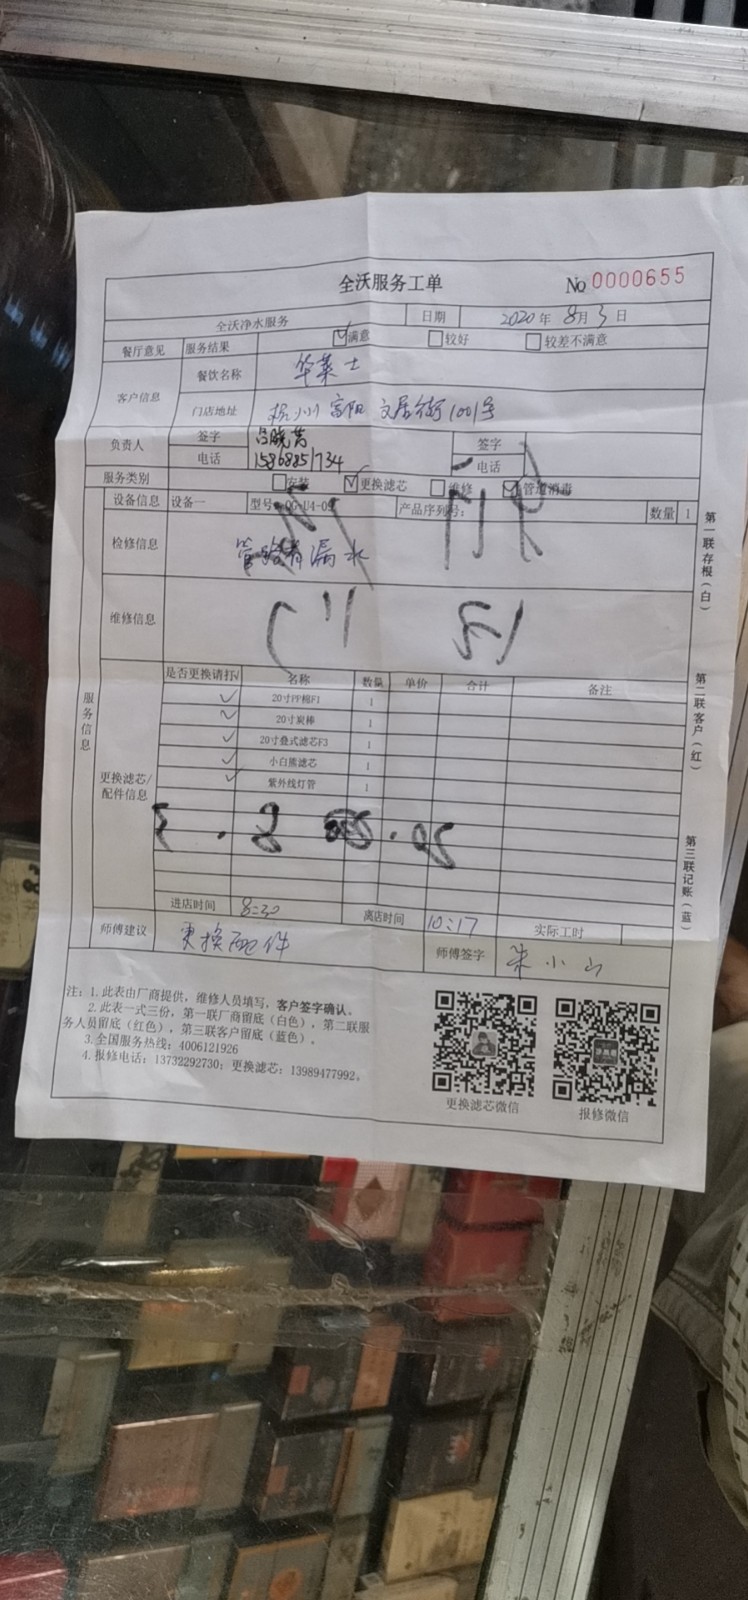 全沃服务工单 No 0000655
全沃净水服务 日期 2020年 8月3日
餐厅意见 服务结果 满意 较好 较差不满意
客户信息 餐饮名称 华莱士
门店地址 杭州富阳 文居街1001号
负责人 签字 签字
电话 15868851734 电话
服务类别 安装 更换滤芯 维修 管道消毒
设备信息 设备一 型号 产品序列号: 数量 1
检修信息 漏水
维修信息
服务信息
是否更换请打√ 名称 数量 单价 合计 备注
20寸PP棉F1 1
20寸炭棒 1
20寸叠式滤芯F3 1
小白熊滤芯 1
紫外线灯管 1
更换滤芯/
配件信息
进店时间 8:30 离店时间 10:17 实际工时
师傅建议 更换配件 师傅签字 朱小山
注: 1.此表由厂商提供, 维修人员填写, 客户签字确认。
2.此表一式三份, 第一联厂商留底(白色), 第二联服
务人员留底(红色), 第三联客户留底(蓝色)。
3.全国服务热线: 4006121926
4.报修电话: 13732292730; 更换滤芯: 13989477992。
更换滤芯微信 报修微信
第一联存根(白)
第二联客户(红)
第三联记账(蓝)